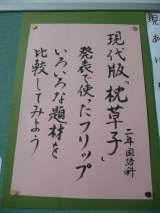 現代版「枕草子」
二年国語科
発表で使ったフリップ
いろいろな題材を
比較してみよう